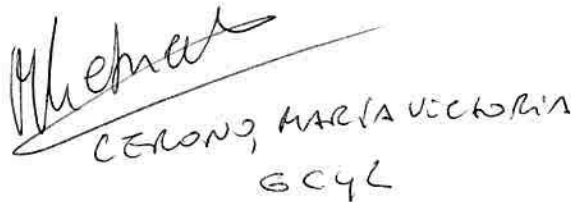 CERONO, MARÍA VICTORIA
GCyL